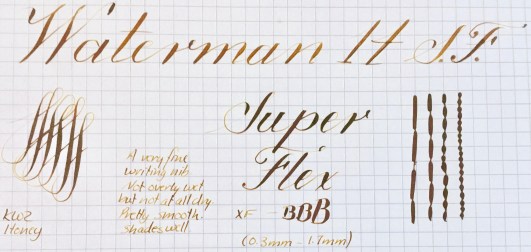 Waterman 14 S.F.
Super
Flex
XF - BBB
(0.3mm - 1.7mm)
A very fine
writing nib.
Not overly wet
but not at all dry.
Pretty smooth.
shades well
KWZ
Honey